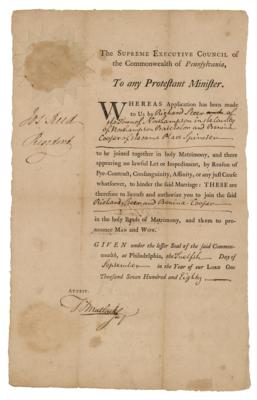 THE SUPREME EXECUTIVE COUNCIL of
the COMMONWEALTH of Pennsylvania,
To any Protestant Minister.
WHEREAS Application has been made
to Us by Richard
the Town of Northampton in the County
of Northampton Batchelor and
Cooper of the same Place Spinster
to be joined together in holy Matrimony, and there
appearing no lawful Let or Impediment, by Reason of
Pre-Contract, Consanguinity, Affinity, or any just Cause
whatsoever, to hinder the said Marriage: THESE are
therefore to licence and authorize you to join the said
Richard and Cooper
in the holy Bands of Matrimony, and them to pronounce MAN and WIFE.
GIVEN under the lesser Seal of the said Commonwealth, at Philadelphia, the Twelfth Day of
September in the Year of our LORD One
Thousand Seven Hundred and Eighty
Jos. Reed
President
ATTEST.
T Matlack